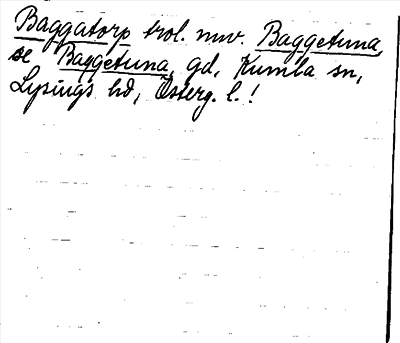 Baggatorp trol. nuv. Baggetuna,
se Baggetuna gd, Kumla sn,
Lysings hd, Österg. l.!